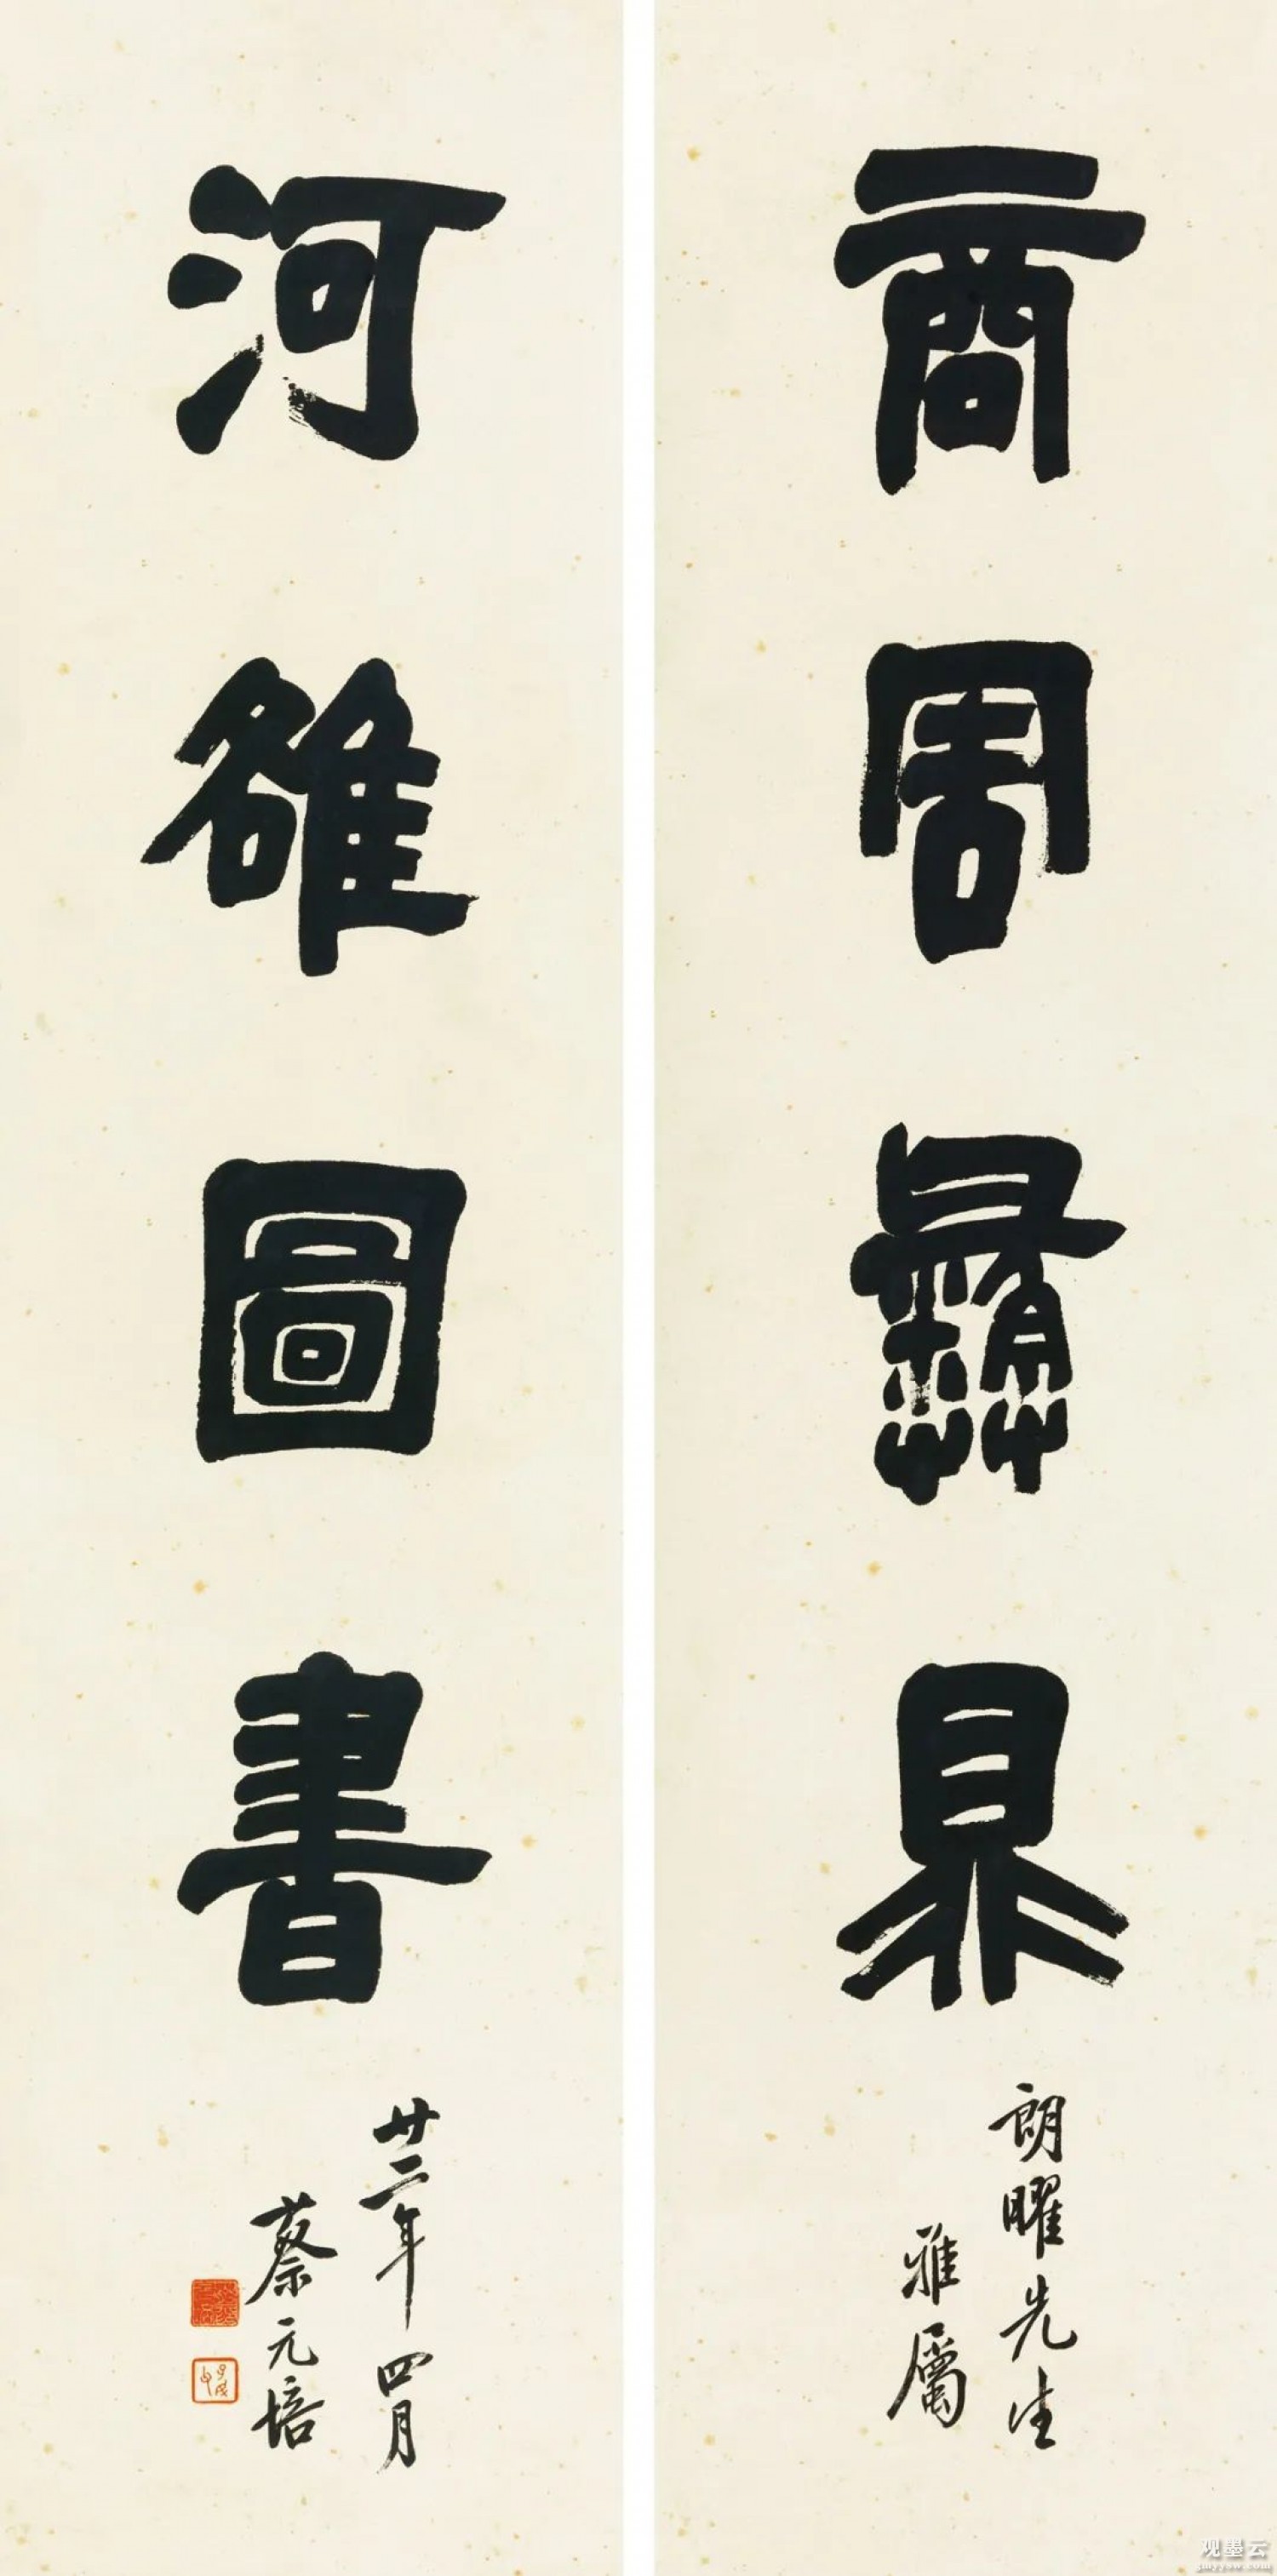 商周彝鼎
朗曜先生
雅屬
河雒圖書
廿二年四月
蔡元培
观墨云